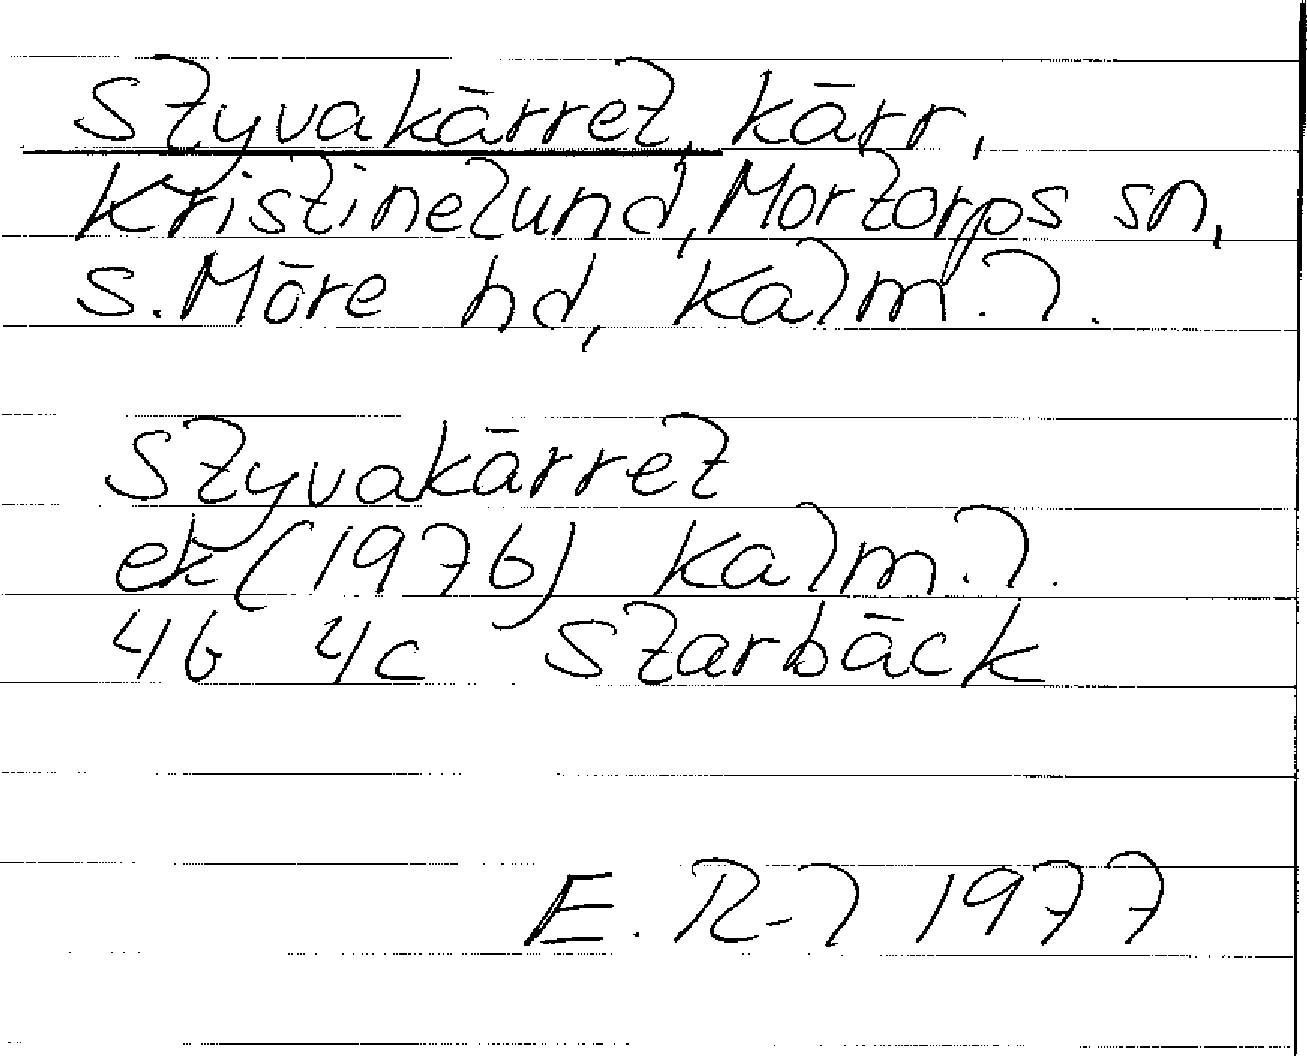 Styvakärret, kärr,
Kristinelund, Mortorps sn,
S. Möre hd, Kalm. l.
Styvakärret
ek (1976) Kalm. l.
4G 4c Starbäck
E. R-l 1977